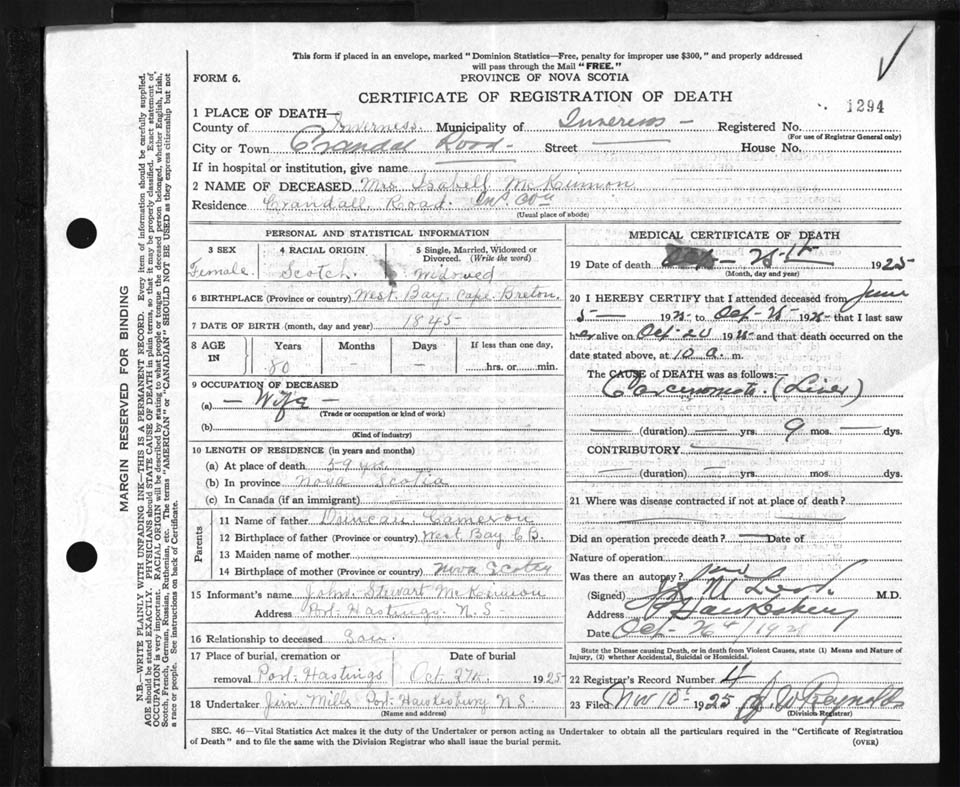 This form if placed in an envelope, marked "Dominion Statistics—Free, penalty for improper use $300," and properly addressed
will pass through the Mail "FREE."
FORM 6.
PROVINCE OF NOVA SCOTIA
CERTIFICATE OF REGISTRATION OF DEATH
1294
1 PLACE OF DEATH—
County of Inverness Municipality of Inverness — Registered No.
(For use of Registrar General only)
City or Town Crandal Road Street — House No.
If in hospital or institution, give name
2 NAME OF DECEASED Mrs Isabell McKinnon
Residence Crandall Road. Inv Cou
(Usual place of abode)
PERSONAL AND STATISTICAL INFORMATION
3 SEX 4 RACIAL ORIGIN 5 Single, Married, Widowed or
Divorced. (Write the word)
Female. Scotch Widowed
6 BIRTHPLACE (Province or country) West Bay Cape Breton
7 DATE OF BIRTH (month, day and year) 1845
8 AGE IN Years Months Days If less than one day,
80 — — hrs. or min.
9 OCCUPATION OF DECEASED
(a) — Wife —
(Trade or occupation or kind of work)
(b)
(Kind of industry)
10 LENGTH OF RESIDENCE (in years and months)
(a) At place of death 59 yrs.
(b) In province Nova Scotia
(c) In Canada (if an immigrant)
Parents
11 Name of father Duncan Cameron
12 Birthplace of father (Province or country) West Bay C B.
13 Maiden name of mother
14 Birthplace of mother (Province or country) Nova Scotia
15 Informant's name John Stewart McKinnon
Address Port Hastings N. S
16 Relationship to deceased Son.
17 Place of burial, cremation or Date of burial
removal Port Hastings Oct 27th 1925
18 Undertaker Jim Mills Port Hawkesbury N S.
(Name and address)
MEDICAL CERTIFICATE OF DEATH
19 Date of death 1925
(Month, day and year)
20 I HEREBY CERTIFY that I attended deceased from June
5 — 1925 to Oct- 25 1925 that I last saw
her alive on Oct- 20 1925 and that death occurred on the
date stated above, at 10 a. m.
The CAUSE of DEATH was as follows:—
Carcinomata (Liver)
(duration) — yrs. 9 mos. — dys.
CONTRIBUTORY
(duration) yrs. mos. dys.
21 Where was disease contracted if not at place of death?
Did an operation precede death? — Date of
Nature of operation
Was there an autopsy?
(Signed) M.D.
Address P Hawkesbury
Date Oct- 26 / 192
State the Disease causing Death, or in death from Violent Causes, state (1) Means and Nature of
Injury, (2) whether Accidental, Suicidal or Homicidal.
22 Registrar's Record Number 4
23 Filed Nov 10th 1925 J. W Reynolds
(Division Registrar)
SEC. 46—Vital Statistics Act makes it the duty of the Undertaker or person acting as Undertaker to obtain all the particulars required in the "Certificate of Registration
of Death" and to file the same with the Division Registrar who shall issue the burial permit. (OVER)
MARGIN RESERVED FOR BINDING
N.B.—WRITE PLAINLY WITH UNFADING INK—THIS IS A PERMANENT RECORD. Every item of information should be carefully supplied.
AGE should be stated EXACTLY. PHYSICIANS should STATE CAUSE OF DEATH in plain terms, so that it may be properly classified. Exact statement of
OCCUPATION is very important. RACIAL ORIGIN will be described by stating to what people or tongue the deceased person belonged, whether English, Irish,
Scotch, French, German, Russian, Ruthenian, etc. The terms "AMERICAN" or "CANADIAN" SHOULD NOT BE USED as they express citizenship but not
a race or people. See instructions on back of Certificate.